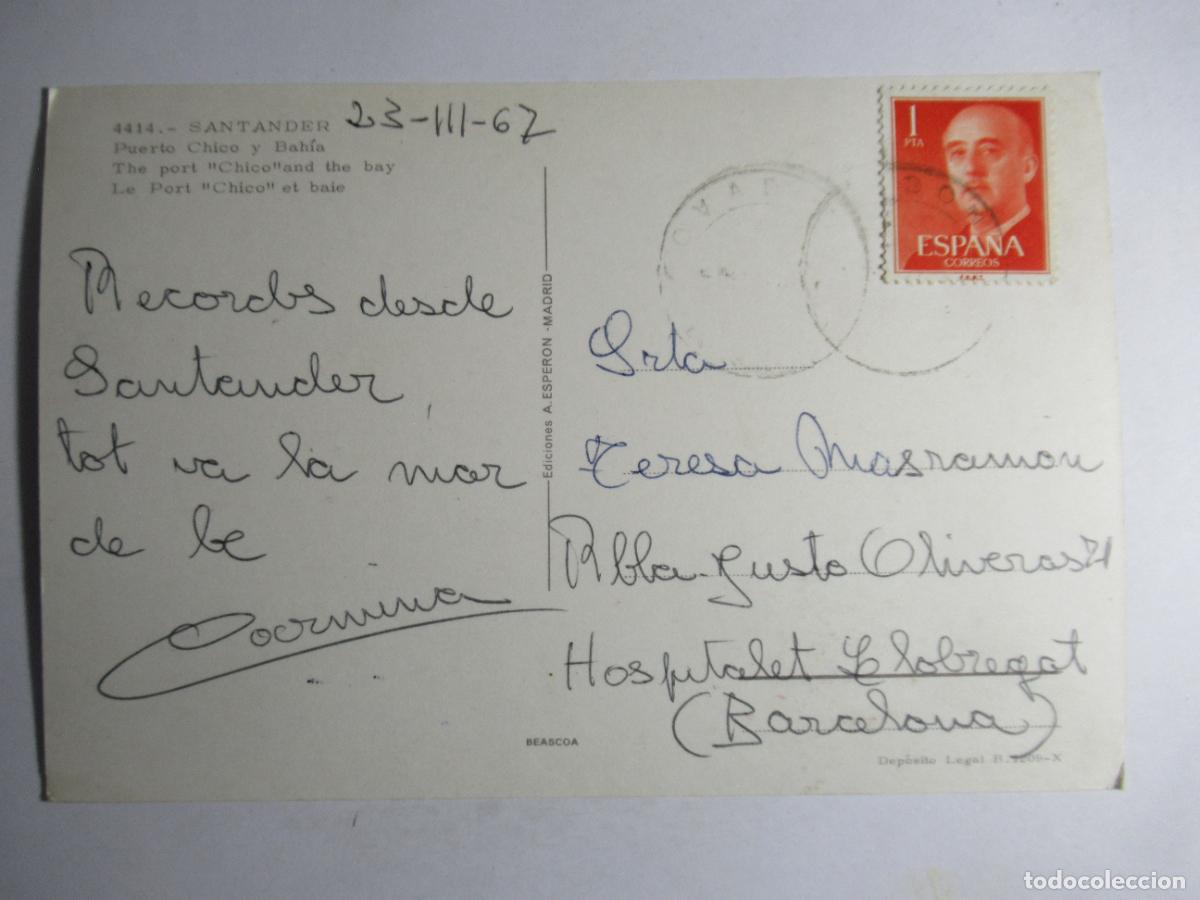 4414.- SANTANDER 23-III-67
Puerto Chico y Bahía
The port "Chico" and the bay
Le Port "Chico" et baie
Records desde
Santander
tot va la mar
de be
Carmina
Ediciones A. ESPERON - MADRID
1
PTA
ESPAÑA
CORREOS
Srta
Teresa Masramon
Rbla Justo Oliveras 71
Hospitalet Llobregat
(Barcelona)
BEASCOA
Depósito Legal B.
todocoleccion